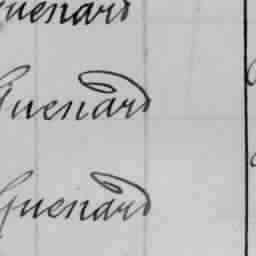 Guenard
Guenard
Guenard